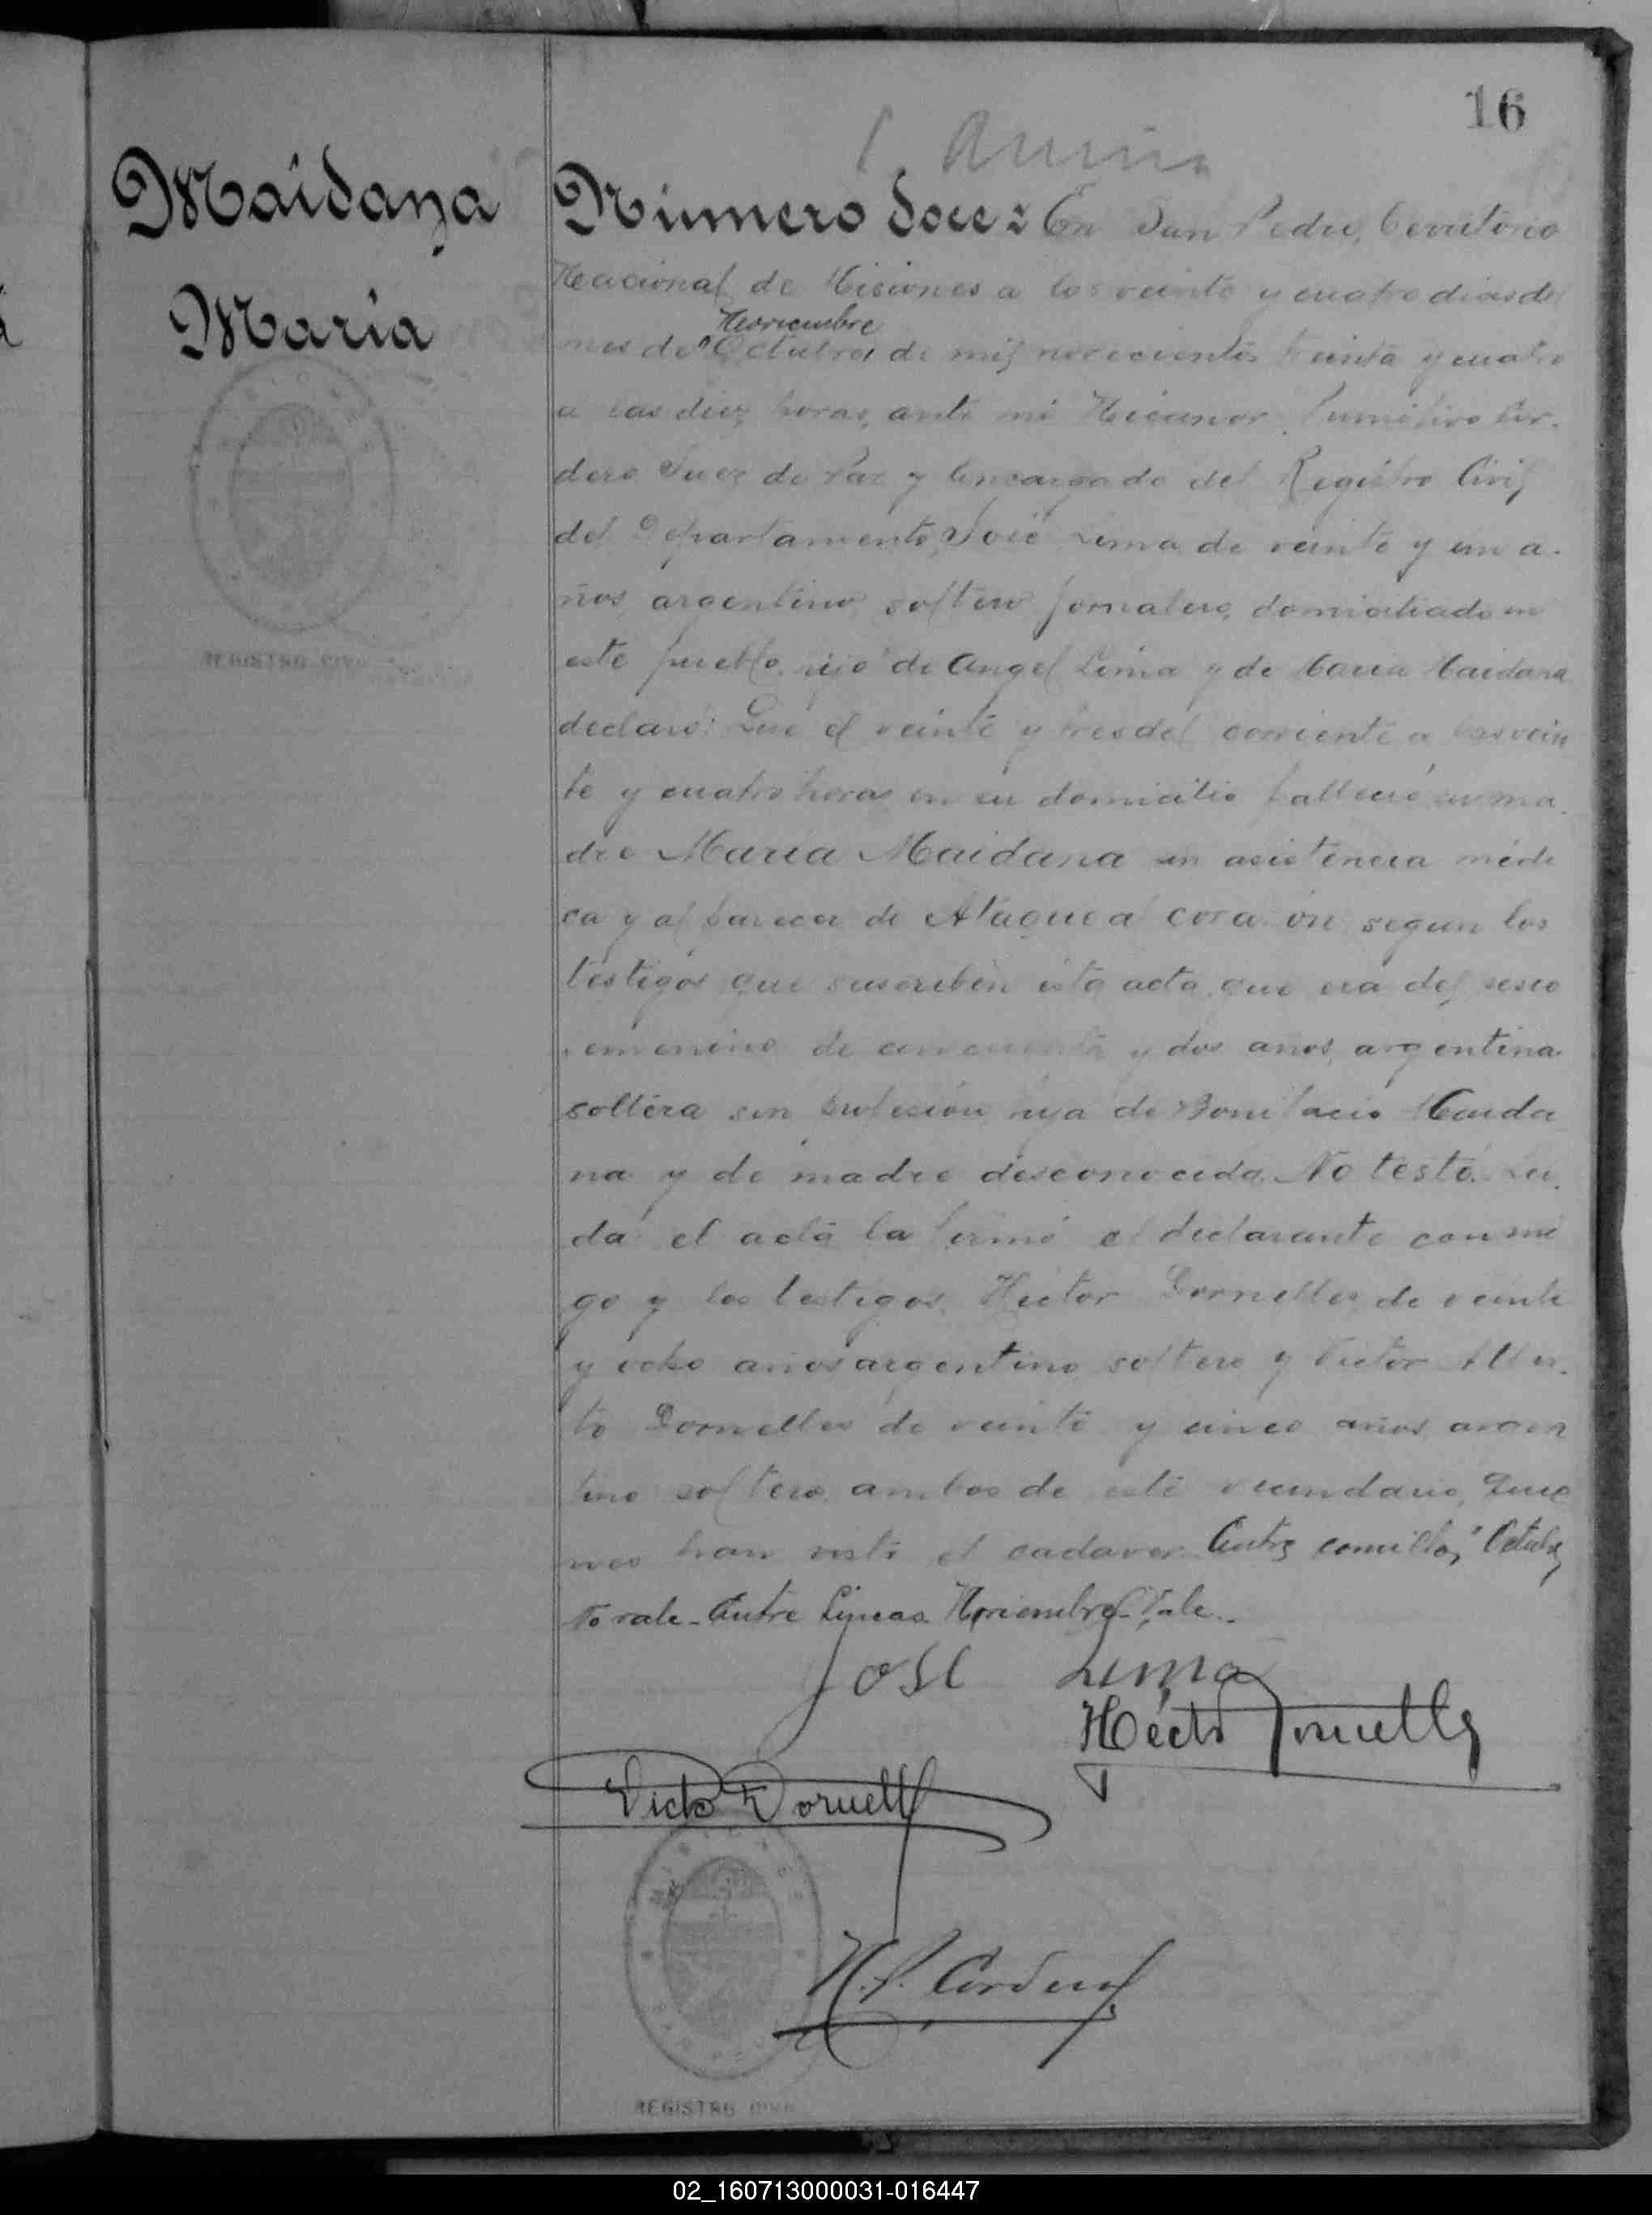 16
Maidana
María
Número doce: En San Pedro, Territorio
Nacional de Misiones a los veinte y cuatro dias del
Noviembre
mes de "Octubre" de mil novecientos treinta y cuatro
a las diez horas, ante mi Nicanor Primitivo Cor-
dero Juez de Paz y Encargado del Registro Civil
del Departamento, José Lima de veinte y un a-
ños, argentino, soltero jornalero, domiciliado en
este pueblo, hijo de Angel Lima y de Maria Maidana
declaró: Que el veinte y tres del corriente a las vein
te y cuatro horas en su domicilio falleció su ma-
dre Maria Maidana sin asistencia médi
ca y al parecer de Ataque al corazón segun los
testigos que suscriben esta acta, que era del sexo
femenino de cincuenta y dos años, argentina
soltera sin profesión, hija de Bonifacio Maida
na y de madre desconocida. No testó. Lei-
da el acta la firmó el declarante conmi
go y los testigos, Hector Dornelles de veinte
y ocho años argentino soltero y Victor Alber-
to Dornelles de veinte y cinco años argen
tino soltero, ambos de este vecindario, quie
nes han visto el cadaver. Entre comillas, "Octubre"
No vale. Entre lineas Noviembre. Vale.
Jose Lima
Héctor Dornelles
Victor Dornelles
N. P. Cordero
REGISTRO CIVIL
REGISTRO CIVIL
02_160713000031-016447